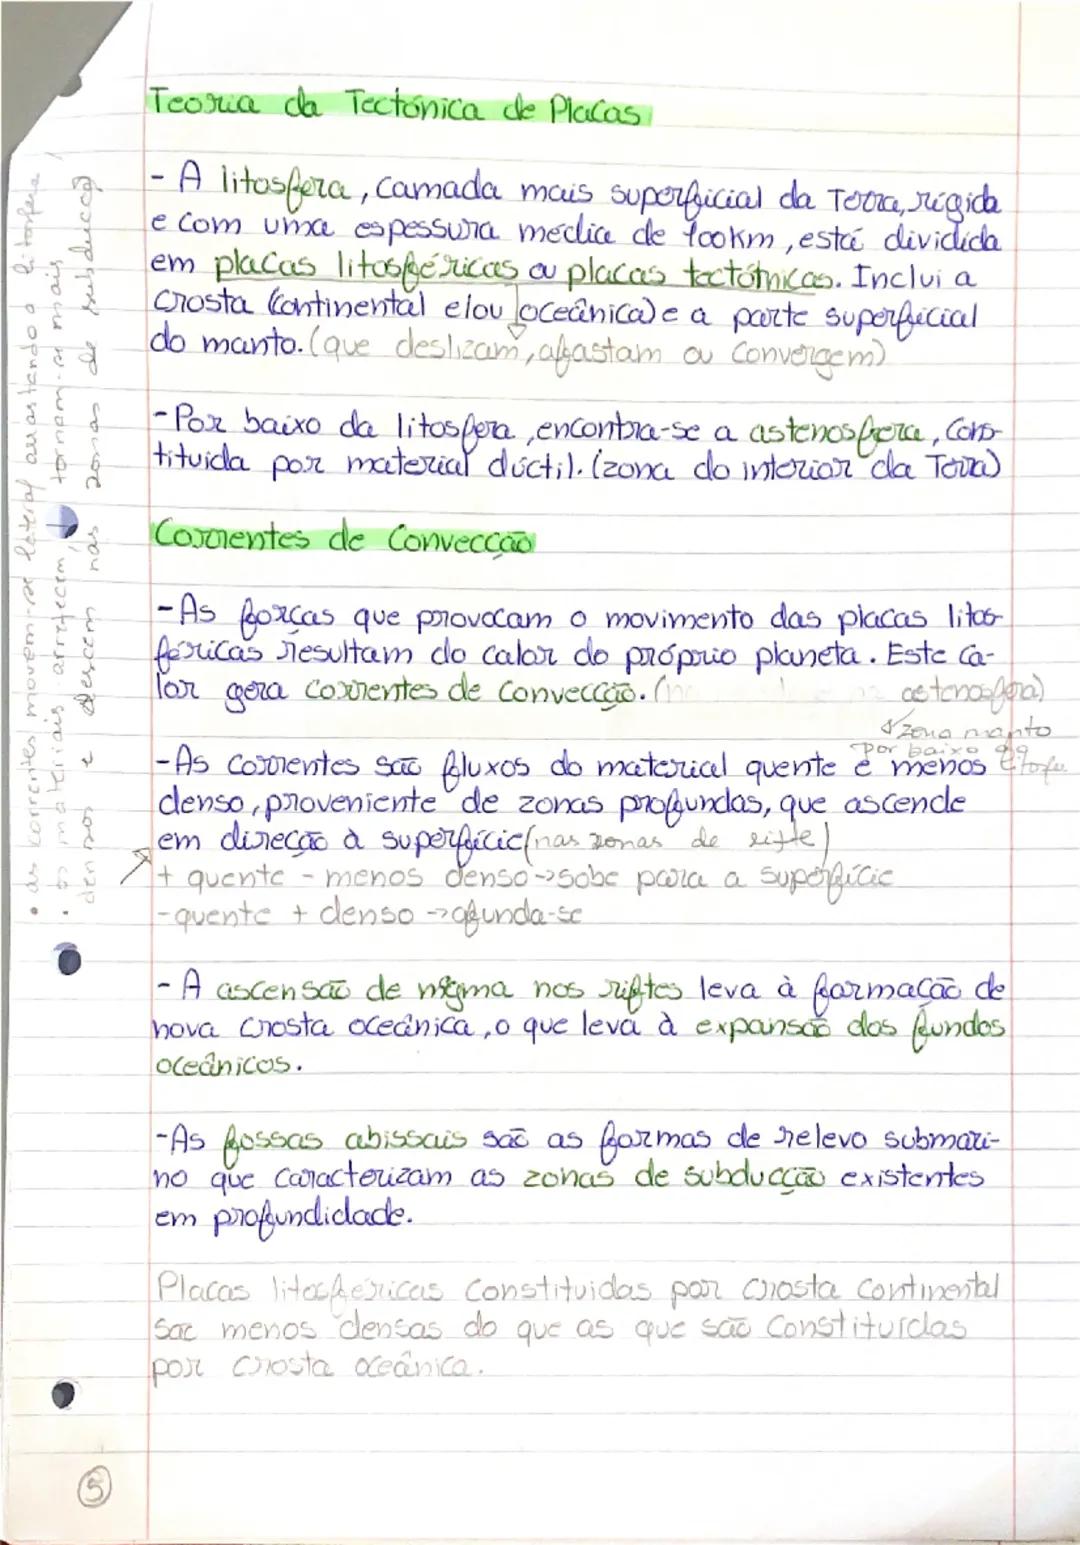 Teoria da Tectónica de Placas
- A litosfera, camada mais superficial da Terra, rígida
e com uma espessura média de 100km, está dividida
em placas litosféricas ou placas tectónicas. Inclui a
crosta (continental e/ou oceânica) e a parte superficial
do manto. (que deslizam, afastam ou convergem)
- Por baixo da litosfera, encontra-se a astenosfera, cons-
tituida por material dúctil. (zona do interior da Terra)
Correntes de Convecção
- As forças que provocam o movimento das placas litos-
féricas resultam do calor do próprio planeta. Este ca-
lor gera correntes de convecção. (na astenosfera)
↓ zona manto
por baixo da
litosfe.
- As correntes são fluxos do material quente e menos
denso, proveniente de zonas profundas, que ascende
em direcção à superfície (nas zonas de rifte)
+ quente - menos denso → sobe para a superfície
- quente + denso → afunda-se
- A ascensão de magma nos riftes leva à formação de
nova crosta oceânica, o que leva à expansão dos fundos
oceânicos.
- As fossas abissais são as formas de relevo submari-
no que caracterizam as zonas de subducção existentes
em profundidade.
Placas litosféricas constituidas por crosta continental
são menos densas do que as que são constituídas
por crosta oceânica.
• As correntes movem-se lateral arrastando a litosfera
• os materiais arrefecem, tornam-se mais
densos e descem nas zonas de subducçã
5